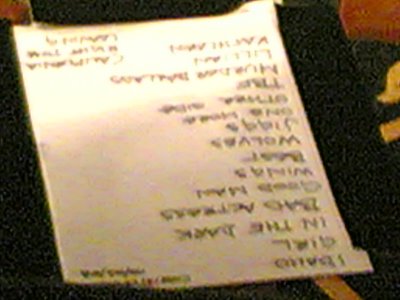 IDAHO
GIRL
IN THE DARK
BAD ACTRESS
GOOD MAN
WINGS
BEST
WOLVES
JIGGS
ONE MORE
OTHER SIDE
MURDER BALLADS
LILLIAN
KATHLEEN
CALIFORNIA